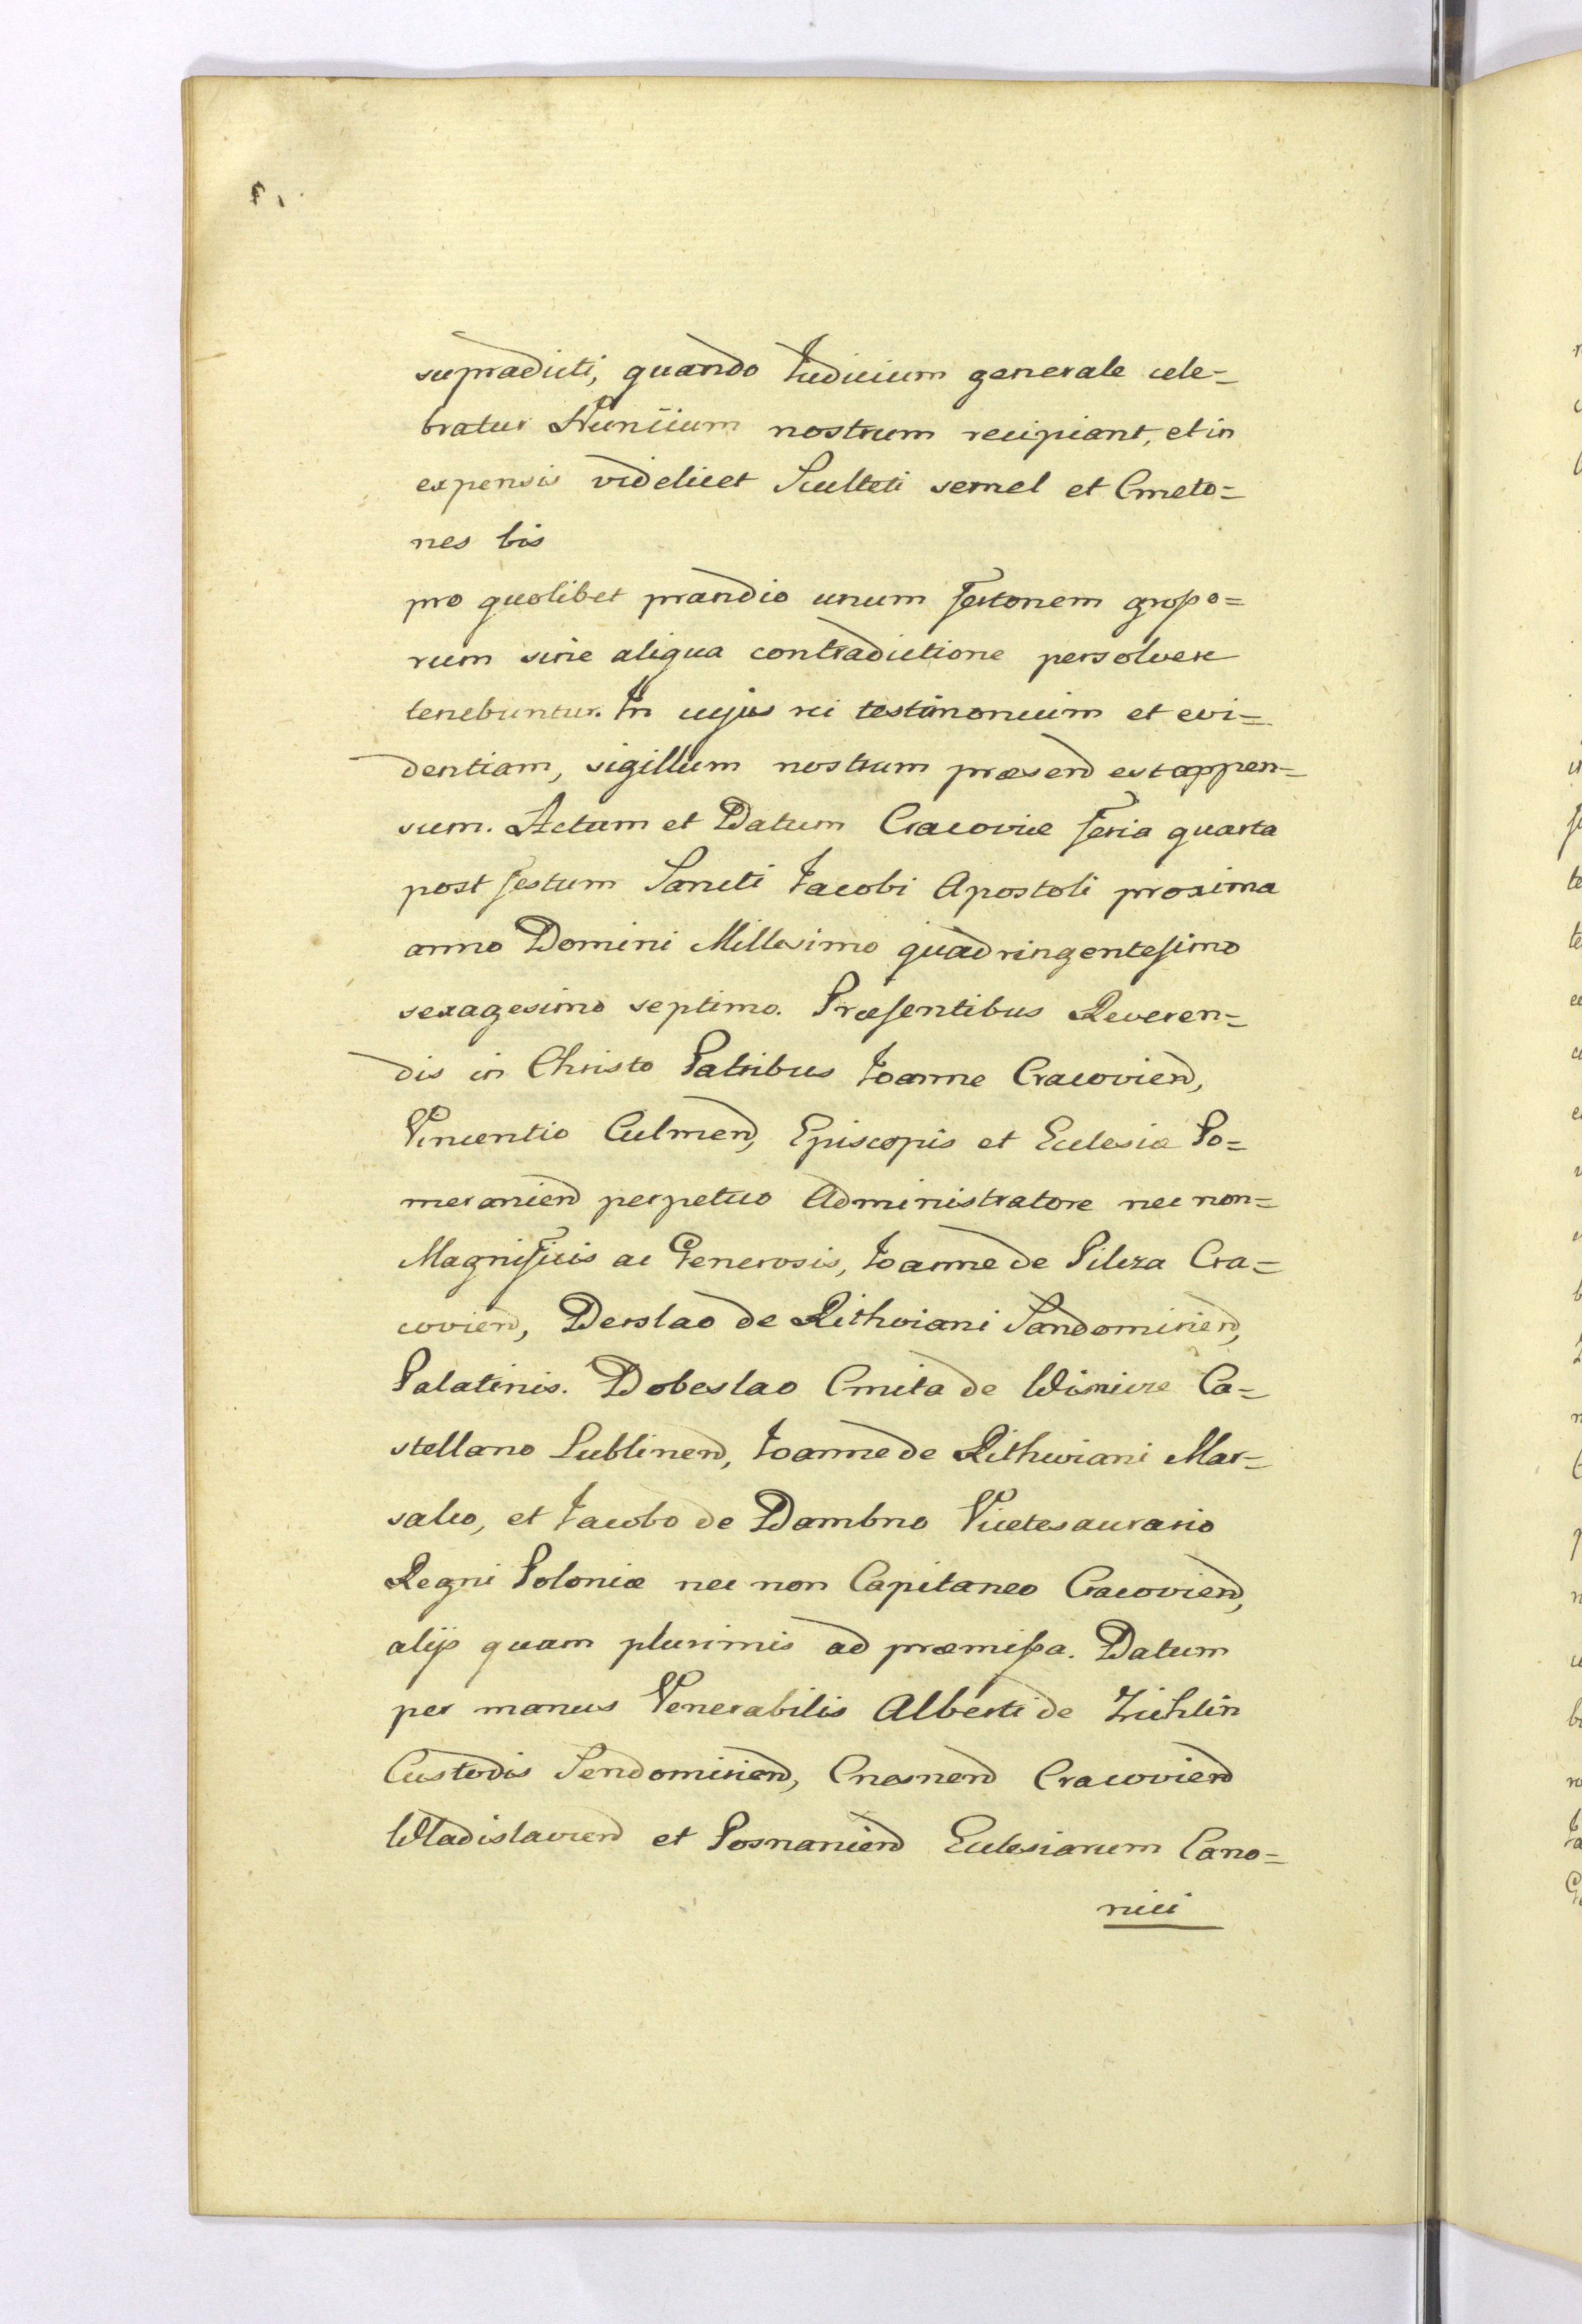 supradicti, quando Iudicium generale cele=
bratur Nuncium nostrum recipiant, et in
expensis videlicet Sculteti semel et Cmeto=
nes bis
pro quolibet prandio unum fertonem grosso=
rum sine aliqua contradictione persolvere
tenebuntur. In cujus rei testimonium et evi=
dentiam, sigillum nostrum præsend est appen=
sum. Actum et Datum Cracoviæ feria quarta
post festum Sancti Iacobi Apostoli proxima
anno Domini Millesimo quadringentesimo
sexagesimo septimo. Præsentibus Reveren=
dis in Christo Patribus Ioanne Cracoviend,
Vincentio Culmend, Episcopis et Eclesiæ Po=
meraniend perpetuo Administratore nec non=
Magnificis ac Generosis, Ioanne de Pilcza Cra=
coviend, Derslao de Rithviani Sandomiriend,
Palatinis. Dobeslao Cmita de Wisnicze Ca=
stellano Lublinend, Ioanne de Rithwiani Mar=
salco, et Iacobo de Dambno Vicetesaurario
Regni Poloniæ nec non Capitaneo Cracoviend,
alijs quam plurimis ad præmissa. Datum
per manus Venerabilis Alberti de Zichlin
Custodis Sendomiriend, Gnesnend Cracoviend
Wladislaviend et Posnaniend Eclesiarum Cano=
nici